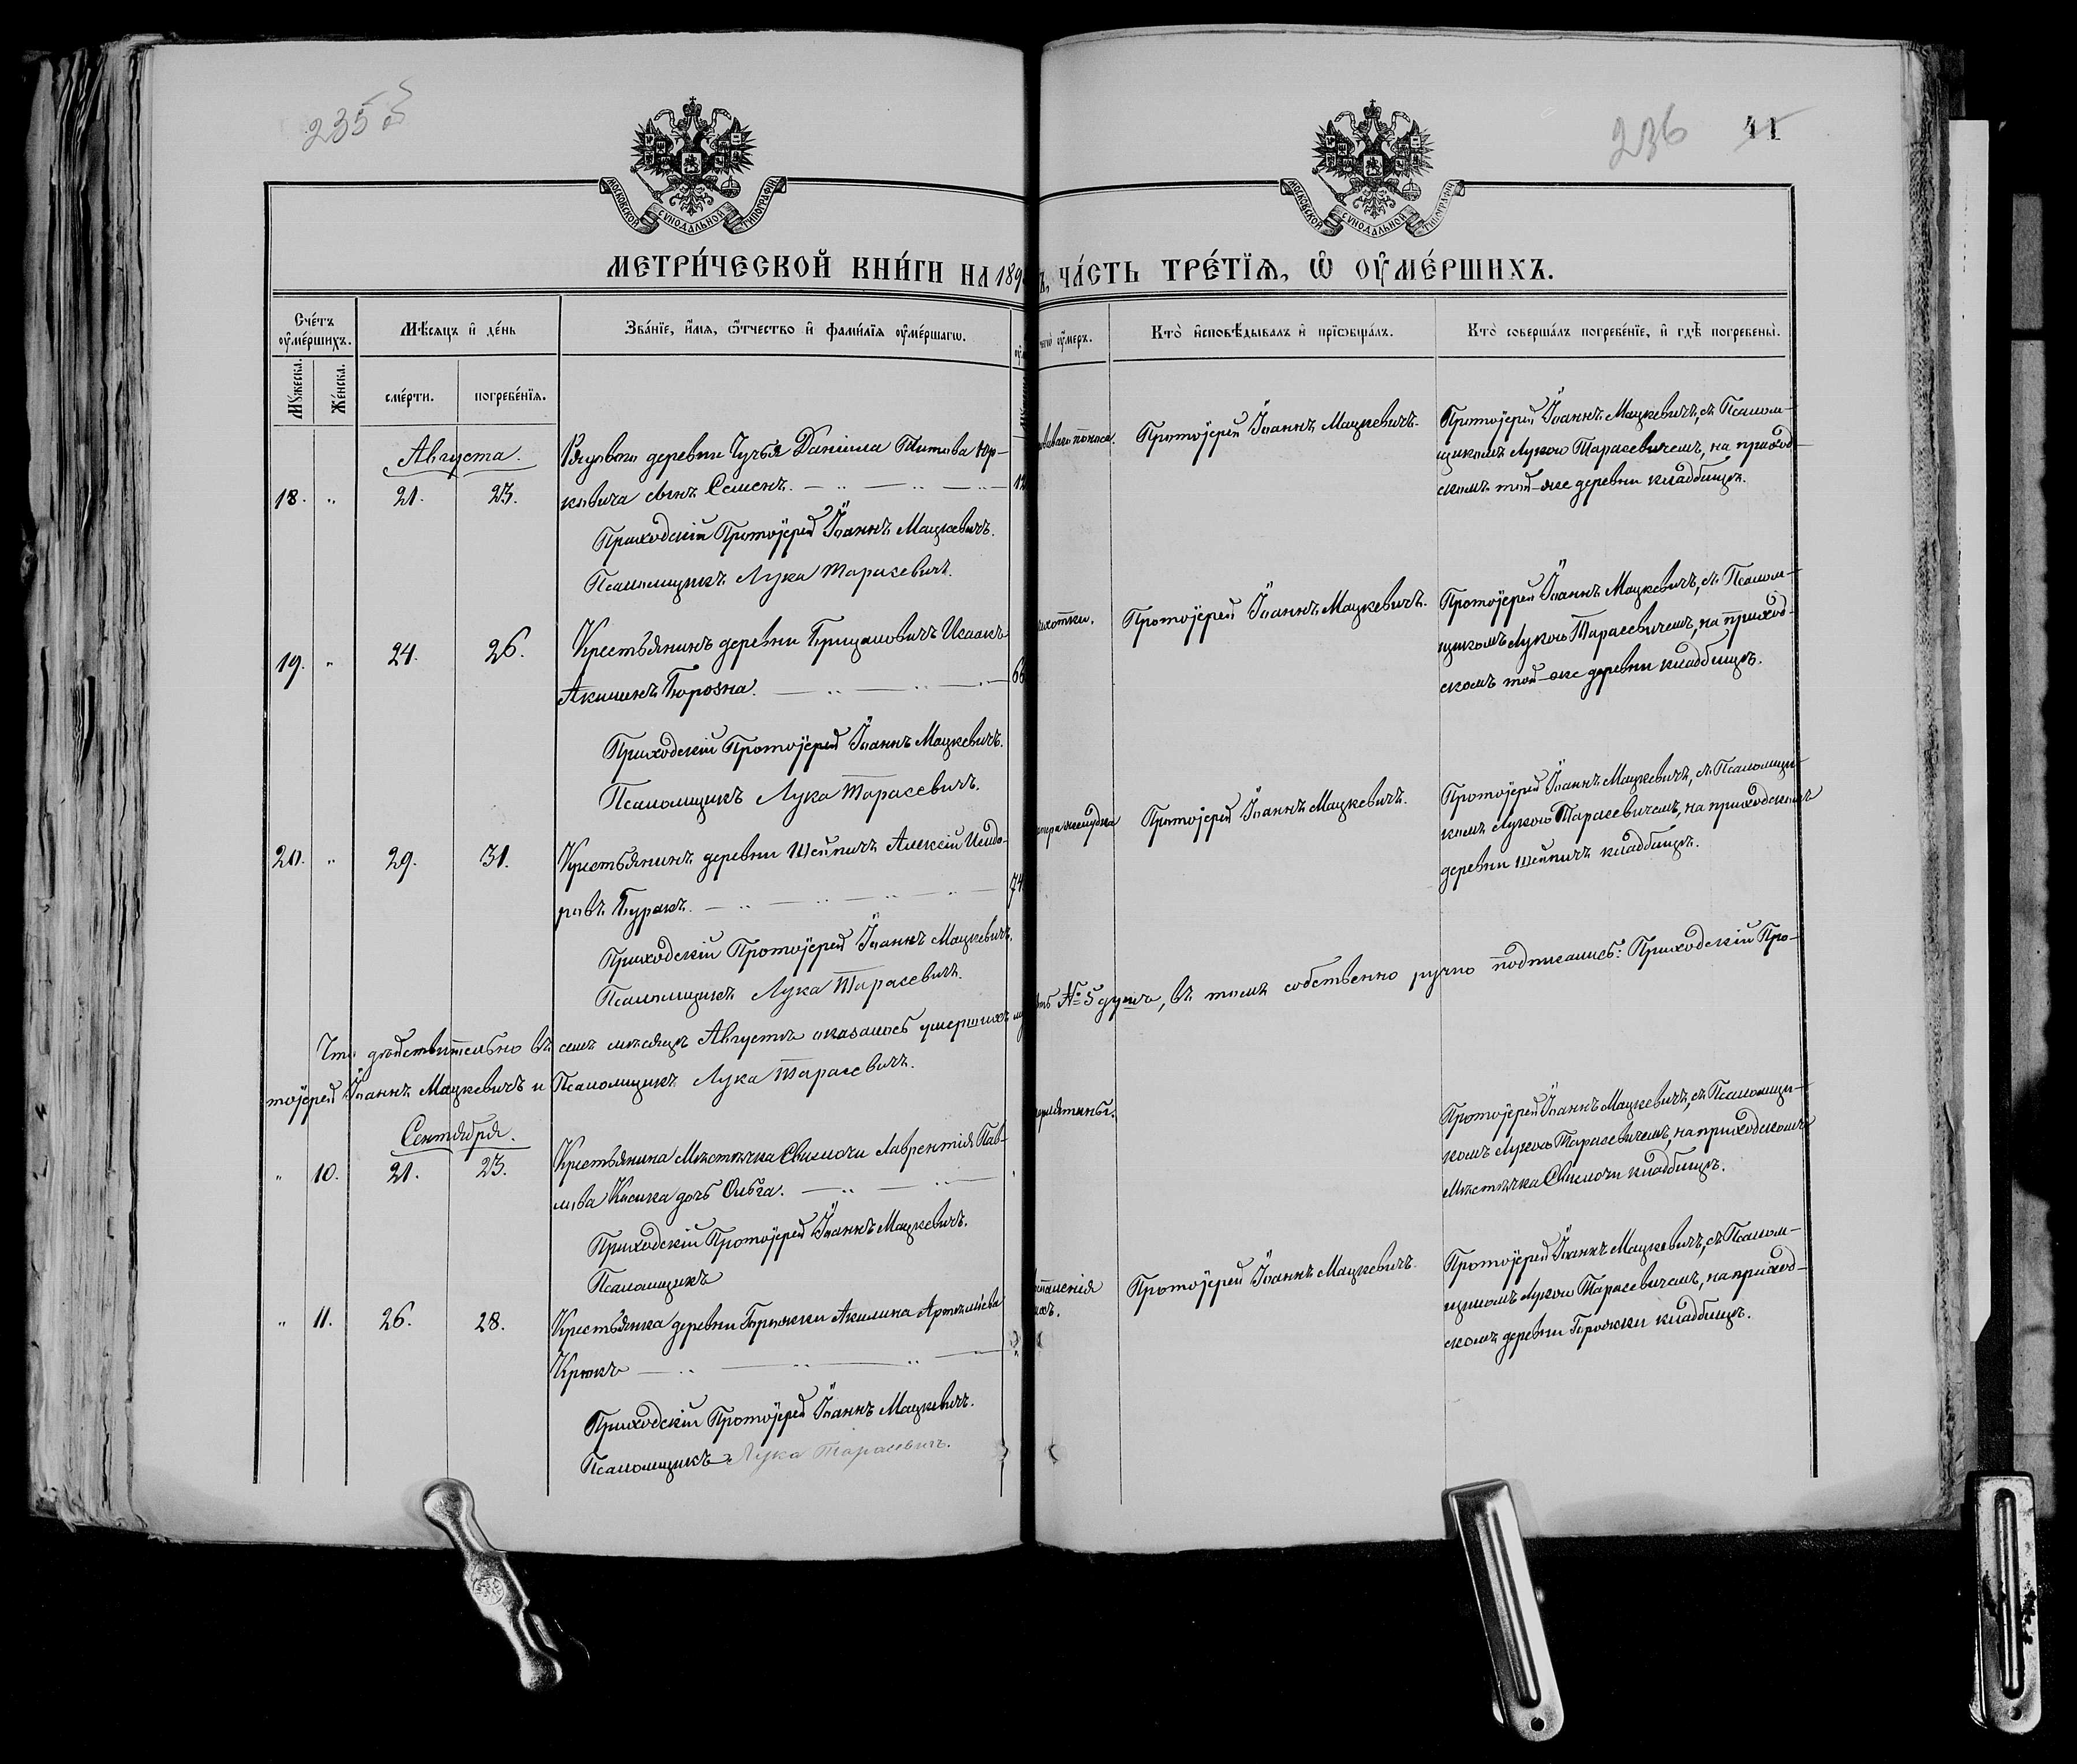 235
236
41
МОСКОВСКОЙ СѴНОДАЛЬНОЙ ТИПОГРАФІИ
МОСКОВСКОЙ СѴНОДАЛЬНОЙ ТИПОГРАФІИ
МЕТРИ́ЧЕСКОЙ КНИ́ГИ НА 189
ЧА́СТЬ ТРЕ́ТЇѦ, Ѡ҆ ОУ҆МЕ́РШИХЪ.
Сче́тъ оу҆ме́ршихъ.
Мꙋ́жеска.
Же́нска.
Мѣ́сѧцъ и҆ де́нь
сме́рти.
погребе́нїѧ.
Зва́нїе, и҆́мѧ, ѻ҆́тчество и҆ фами́лїѧ оу҆ме́ршагѡ.
оу҆́меръ.
Кто̀ и҆сповѣ́дывалъ и҆ прїѡбща́лъ.
Кто̀ соверша́лъ погребе́нїе, и҆ гдѣ̀ погребены̀.
Августа.
18. " 21. 23.
Рядового деревни Чучья Даніила Титова Юр-
ковича сынъ Семенъ.
12
Приходскій Протоіерей Іоаннъ Мацкевичъ.
Псаломщикъ Лука Тарасевичъ.
поноса.
Протоіерей Іоаннъ Мацкевичъ.
Протоіерей Іоаннъ Мацкевичъ, съ Псалом-
щикомъ Лукою Тарасевичемъ, на приход-
скомъ той-же деревни кладбищѣ.
19. " 24. 26.
Крестьянинъ деревни Грицевичъ Исаакъ
Акимовъ Борозна.
66
Приходскій Протоіерей Іоаннъ Мацкевичъ.
Псаломщикъ Лука Тарасевичъ.
чахотки.
Протоіерей Іоаннъ Мацкевичъ.
Протоіерей Іоаннъ Мацкевичъ, съ Псалом-
щикомъ Лукою Тарасевичемъ, на приход-
скомъ той-же деревни кладбищѣ.
20. " 29. 31.
Крестьянинъ деревни Шейпичъ Алексій Исидо-
ровъ Буракъ.
74
Приходскій Протоіерей Іоаннъ Мацкевичъ.
Псаломщикъ Лука Тарасевичъ.
желудка
Протоіерей Іоаннъ Мацкевичъ.
Протоіерей Іоаннъ Мацкевичъ, съ Псаломщи-
комъ Лукою Тарасевичемъ, на приходскомъ
деревни Шейпичъ кладбищѣ.
Что дѣйствительно въ семъ мѣсяцѣ Августѣ оказалось умершихъ
№ 5 душъ, въ томъ собственно ручно подписались: Приходскій Про-
тоіерей Іоаннъ Мацкевичъ и Псаломщикъ Лука Тарасевичъ.
Сентября.
" 10. 21. 23.
Крестьянина Мѣстечка Свислочи Лаврентія Пав-
лова дочь Ольга.
Приходскій Протоіерей Іоаннъ Мацкевичъ.
Псаломщикъ
Протоіерей Іоаннъ Мацкевичъ, съ Псаломщи-
комъ Лукою Тарасевичемъ, на приходскомъ
Мѣстечка Свислочи кладбищѣ.
" 11. 26. 28.
Крестьянка деревни Горожки Акилина Артемьева
Крюкъ
Приходскій Протоіерей Іоаннъ Мацкевичъ.
Псаломщикъ Лука Тарасевичъ.
Протоіерей Іоаннъ Мацкевичъ.
Протоіерей Іоаннъ Мацкевичъ, съ Псалом-
щикомъ Лукою Тарасевичемъ, на приход-
скомъ деревни Горожки кладбищѣ.